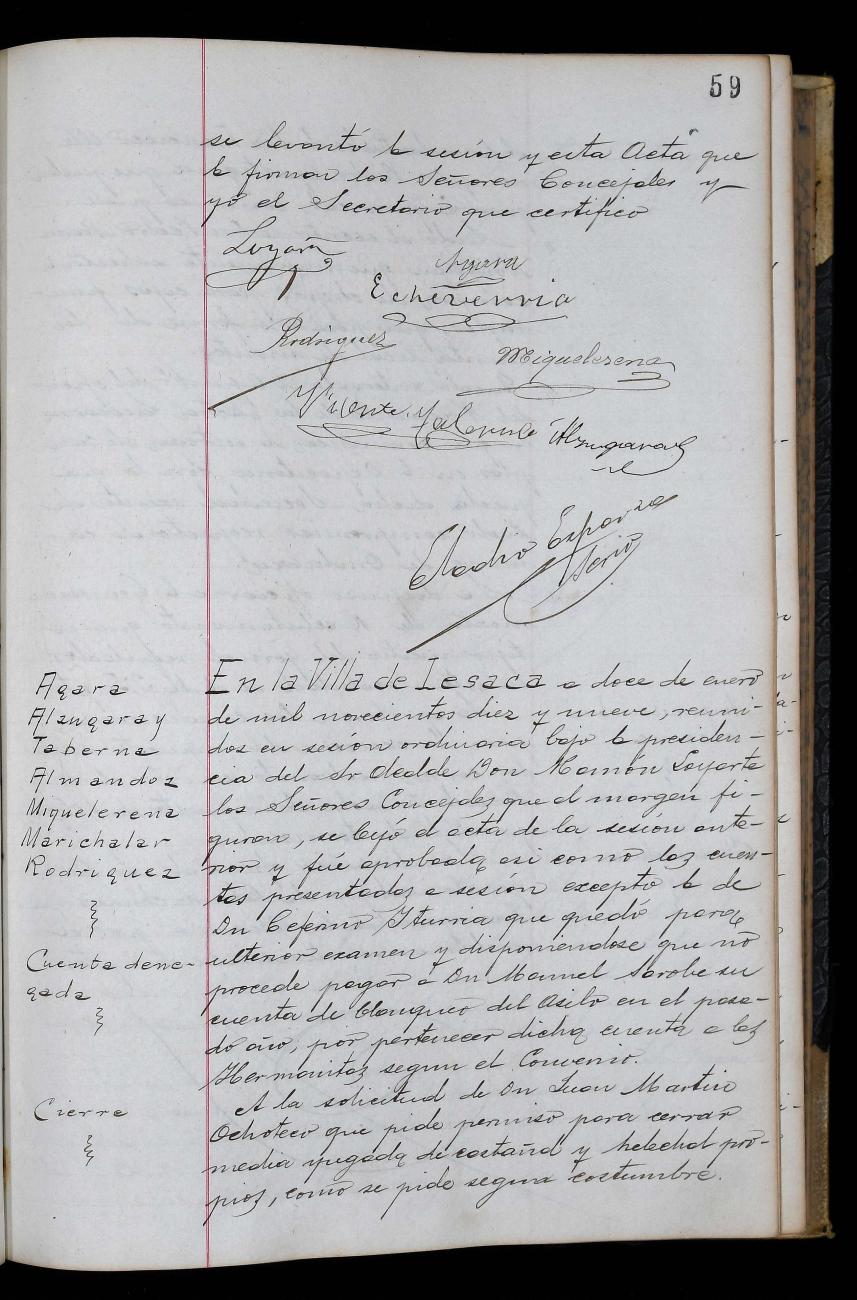 59
se levantó la sesión y esta Acta que
la firman los Señores Concejales y
yo el Secretario que certifico
Loyarte
Agara
Echeverria
Rodriguez
Miquelerena
Vicente Taberna Alzugaray
Eladio Esparza
Serio
Agara
Alzugaray
Taberna
Almandoz
Miquelerena
Marichalar
Rodriguez
En la Villa de Lesaca a doce de enero
de mil novecientos diez y nueve, reuni-
dos en sesión ordinaria bajo la presiden-
cia del Sr Alcalde Don Ramón Loyarte
los Señores Concejales que al margen fi-
guran, se leyó el acta de la sesión ante-
rior y fué aprobada asi como las cuen-
tas presentadas a sesión excepto la de
Dn Ceferino Iturria que quedó para
Cuenta dene-
gada
ulterior examen y disponiendose que no
procede pagar a Dn Manuel Sarobe su
cuenta de blanqueo del Asilo en el pasa-
do año, por pertenecer dicha cuenta a las
Hermanitas segun el Convenio.
Cierre
A la solicitud de Dn Juan Martin
Ochoteco que pide permiso para cerrar
media yugada de castañal y helechal pro-
pios, como se pide segun costumbre.